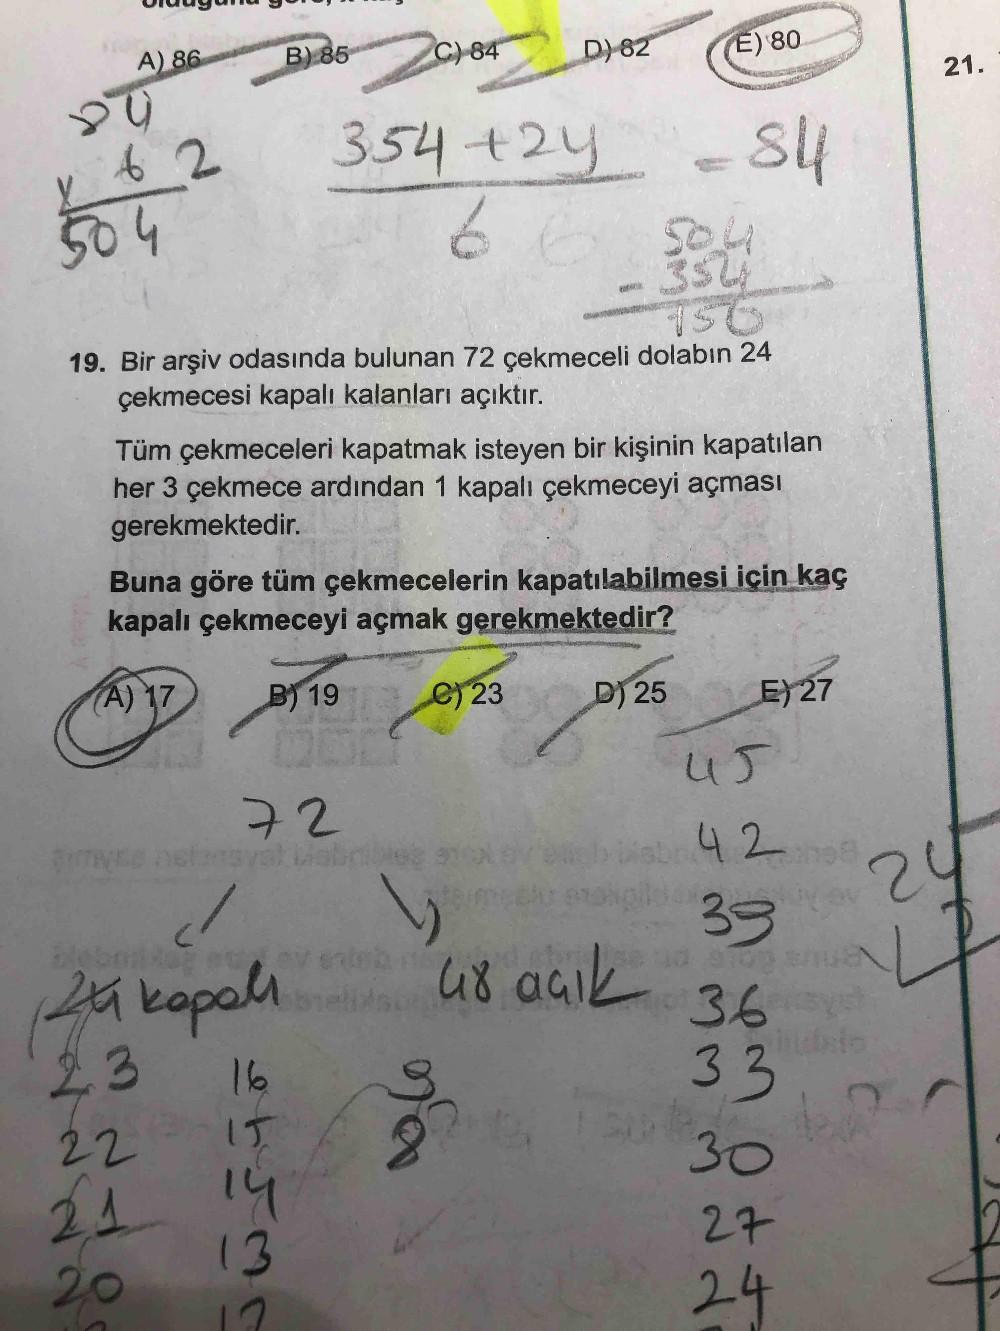 A) 86 B) 85 C) 84 D) 82 E) 80
21.
84
x 6 2
504
354 + 2y
6
= 84
504
- 354
150
19. Bir arşiv odasında bulunan 72 çekmeceli dolabın 24
çekmecesi kapalı kalanları açıktır.
Tüm çekmeceleri kapatmak isteyen bir kişinin kapatılan
her 3 çekmece ardından 1 kapalı çekmeceyi açması
gerekmektedir.
Buna göre tüm çekmecelerin kapatılabilmesi için kaç
kapalı çekmeceyi açmak gerekmektedir?
A) 17 B) 19 C) 23 D) 25 E) 27
72
24 kapalı
48 açık
23
22
21
20
16
15
14
13
12
9
8
45
42
39
36
33
30
27
24
24